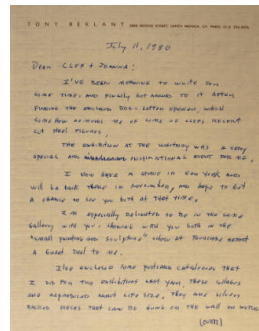 TONY BERLANT
July 11, 1980
DEAR CLEE & JOANNA:
I'VE BEEN MEANING TO WRITE YOU
SOME TIME, AND FINALLY GOT AROUND TO IT AFTER
FINDING THE ENCLOSED DOG- LETTER OPENER, WHICH
SOMEHOW REMINDS ME OF SOME OF CLEE'S RECENT
CUT STEEL FIGURES.
THE EXHIBITION AT THE WHITNEY WAS A VERY
SPECIAL AND INSPIRATIONAL EVENT FOR ME.
I NOW HAVE A STUDIO IN NEW YORK AND
WILL BE BACK THERE IN NOVEMBER, AND HOPE TO GET
A CHANCE TO SEE YOU BOTH AT THAT TIME.
I AM ESPECIALLY DELIGHTED TO BE IN THE SAME
GALLERY WITH YOU. SHOWING WITH YOU BOTH IN THE
"SMALL PAINTING AND SCULPTURE" SHOW AT
A GREAT DEAL TO ME.
I'VE ENCLOSED SOME POSTCARD CATALOGUES THAT
I DID FOR TWO EXHIBITIONS LAST YEAR, THESE
ARE REPRODUCED ABOUT LIFE SIZE, THEY ARE
PIECES THAT CAN BE HUNG ON THE WALL
(OVER)